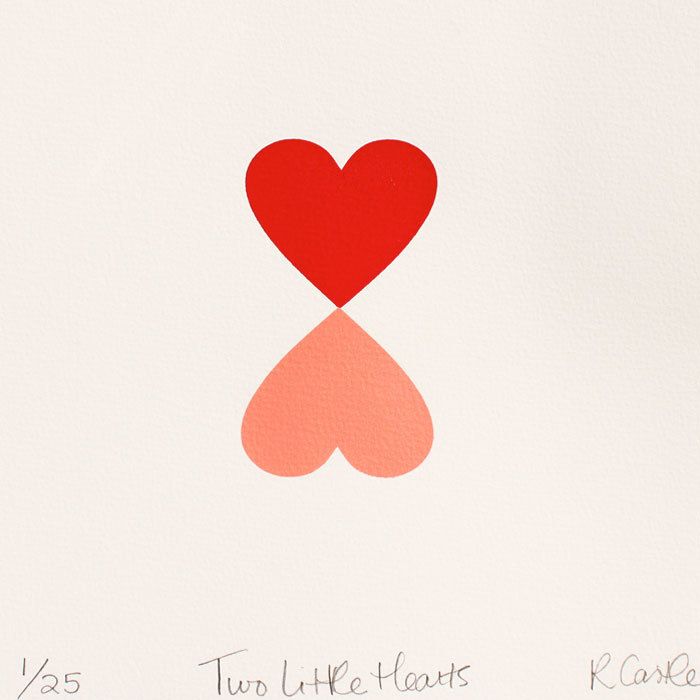 1/25 Two Little Hearts R Castle